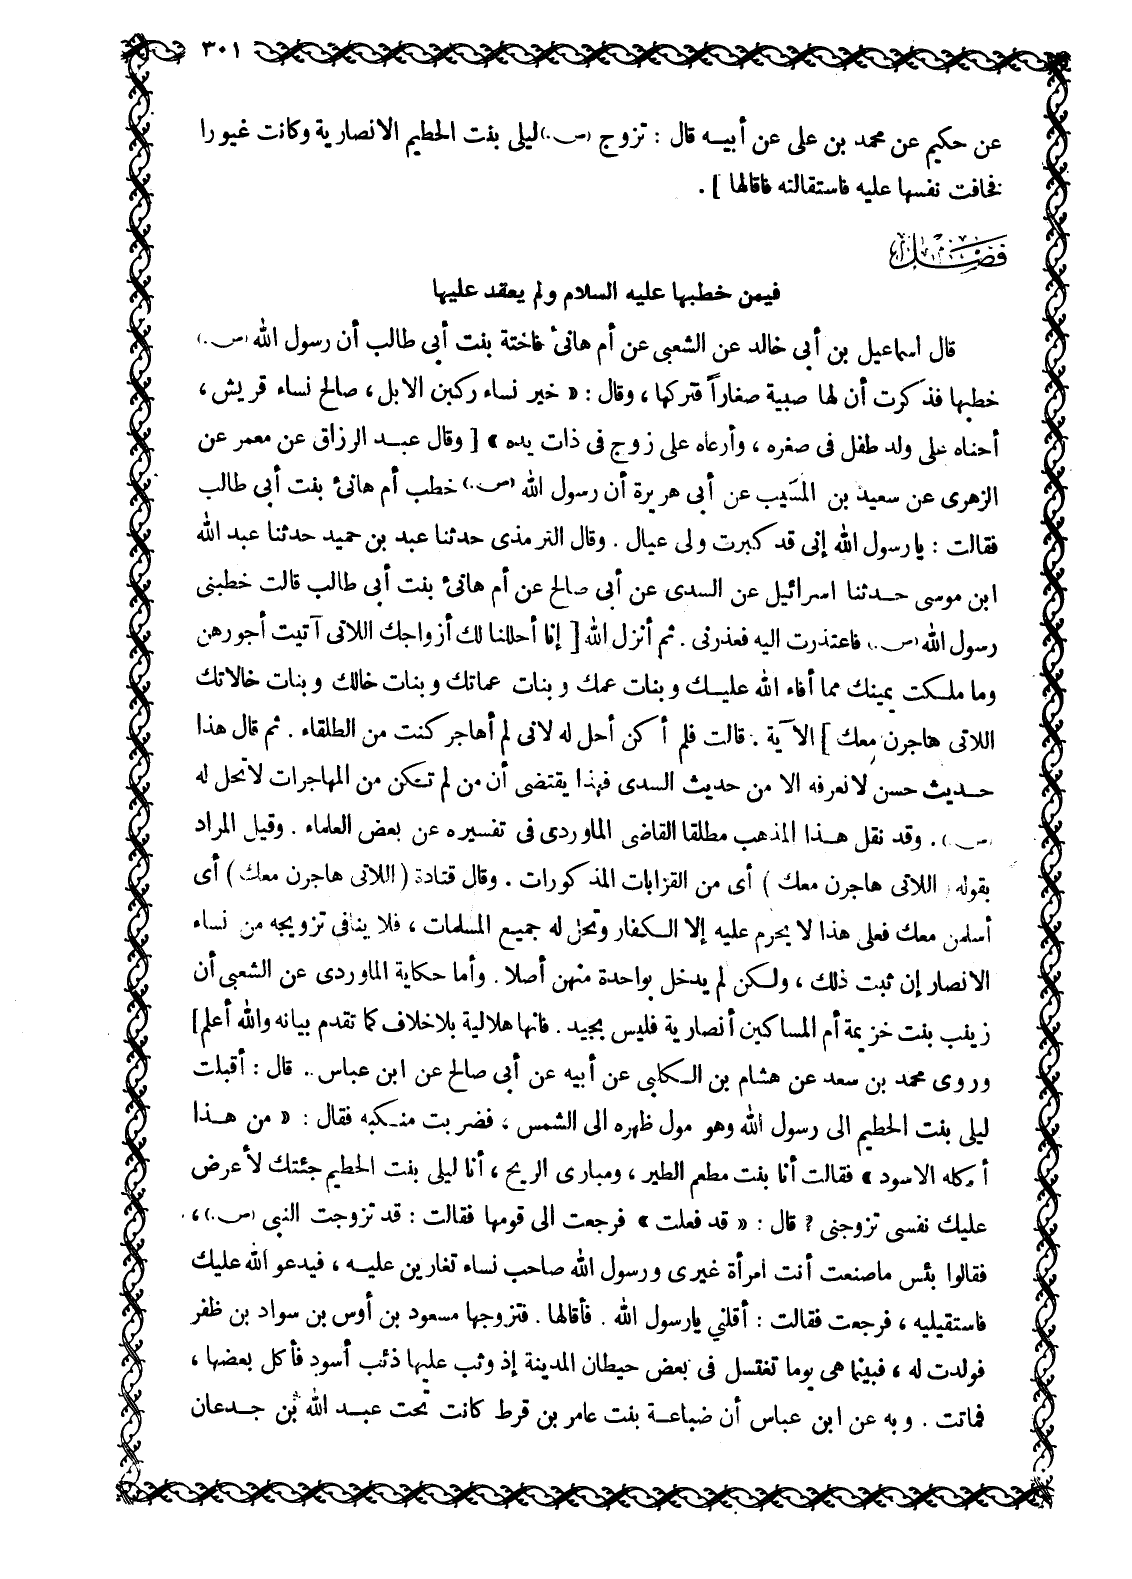 ٣٠١
عن حكيم عن محمد بن على عن أبيه قال : تزوج (ص.) ليلى بنت الحطيم الانصارية وكانت غيورا
فخافت نفسها عليه فاستقالته فاقالها ] .
فصل
فيمن خطبها عليه السلام ولم يعقد عليها
قال اسماعيل بن أبي خالد عن الشعبى عن أم هانئ فاختة بنت أبى طالب أن رسول الله (ص.)
خطبها فذكرت أن لها صبية صغاراً فتركها ، وقال : « خير نساء ركبن الابل ، صالح نساء قريش ،
أحناه على ولد طفل فى صغره ، وأرعاه على زوج فى ذات يده » [ وقال عبد الرزاق عن معمر عن
الزهرى عن سعيد بن المسَيب عن أبى هريرة أن رسول الله (ص.) خطب أم هانئ بنت أبي طالب
فقالت : يا رسول الله إنى قد كبرت ولى عيال . وقال الترمذى حدثنا عبد بن حميد حدثنا عبد الله
ابن موسى حدثنا اسرائيل عن السدى عن أبى صالح عن أم هانئ بنت أبى طالب قالت خطبنى
رسول الله (ص.) فاعتذرت اليه فعذرنى . ثم أنزل الله [ إنا أحللنا لك أزواجك اللاتى آتيت أجورهن
وما ملكت يمينك مما أفاء الله عليك وبنات عمك وبنات عماتك وبنات خالك وبنات خالاتك
اللاتى هاجرن معك ] الآية . قالت فلم أكن أحل له لانى لم أهاجر كنت من الطلقاء . ثم قال هذا
حديث حسن لا نعرفه الا من حديث السدى فهذا يقتضى أن من لم تكن من المهاجرات لا تحل له
(ص.) . وقد نقل هذا المذهب مطلقا القاضى الماوردى فى تفسيره عن بعض العلماء . وقيل المراد
بقوله ( اللاتى هاجرن معك ) أى من القرابات المذكورات . وقال قتادة ( اللاتى هاجرن معك ) أى
أسلمن معك فعلى هذا لا يحرم عليه إلا الكفار وتحل له جميع المسلمات ، فلا ينافى تزويجه من نساء
الانصار إن ثبت ذلك ، ولكن لم يدخل بواحدة منهن أصلا . وأما حكاية الماوردى عن الشعبى أن
زينب بنت خزيمة أم المساكين أنصارية فليس بجيد . فانها هلالية بلا خلاف كما تقدم بيانه والله أعلم ]
وروى محمد بن سعد عن هشام بن الكلبى عن أبيه عن أبى صالح عن ابن عباس .. قال : أقبلت
ليلى بنت الحطيم الى رسول الله وهو مول ظهره الى الشمس ، فضربت منكبه فقال : « من هذا
أكله الاسود » فقالت أنا بنت مطعم الطير ، ومبارى الريح ، أنا ليلى بنت الحطيم جئتك لأعرض
عليك نفسى تزوجنى ؟ قال : « قد فعلت » فرجعت الى قومها فقالت : قد تزوجت النبى (ص.) ،
فقالوا بئس ما صنعت أنت امرأة غيرى ورسول الله صاحب نساء تغارين عليه ، فيدعو الله عليك
فاستقيليه ، فرجعت فقالت : أقلني يا رسول الله . فأقالها . فتزوجها مسعود بن أوس بن سواد بن ظفر
فولدت له ، فبينما هى يوما تغتسل فى بعض حيطان المدينة إذ وثب عليها ذئب أسود فأكل بعضها ،
فماتت . وبه عن ابن عباس أن ضباعة بنت عامر بن قرط كانت تحت عبد الله بن جدعان